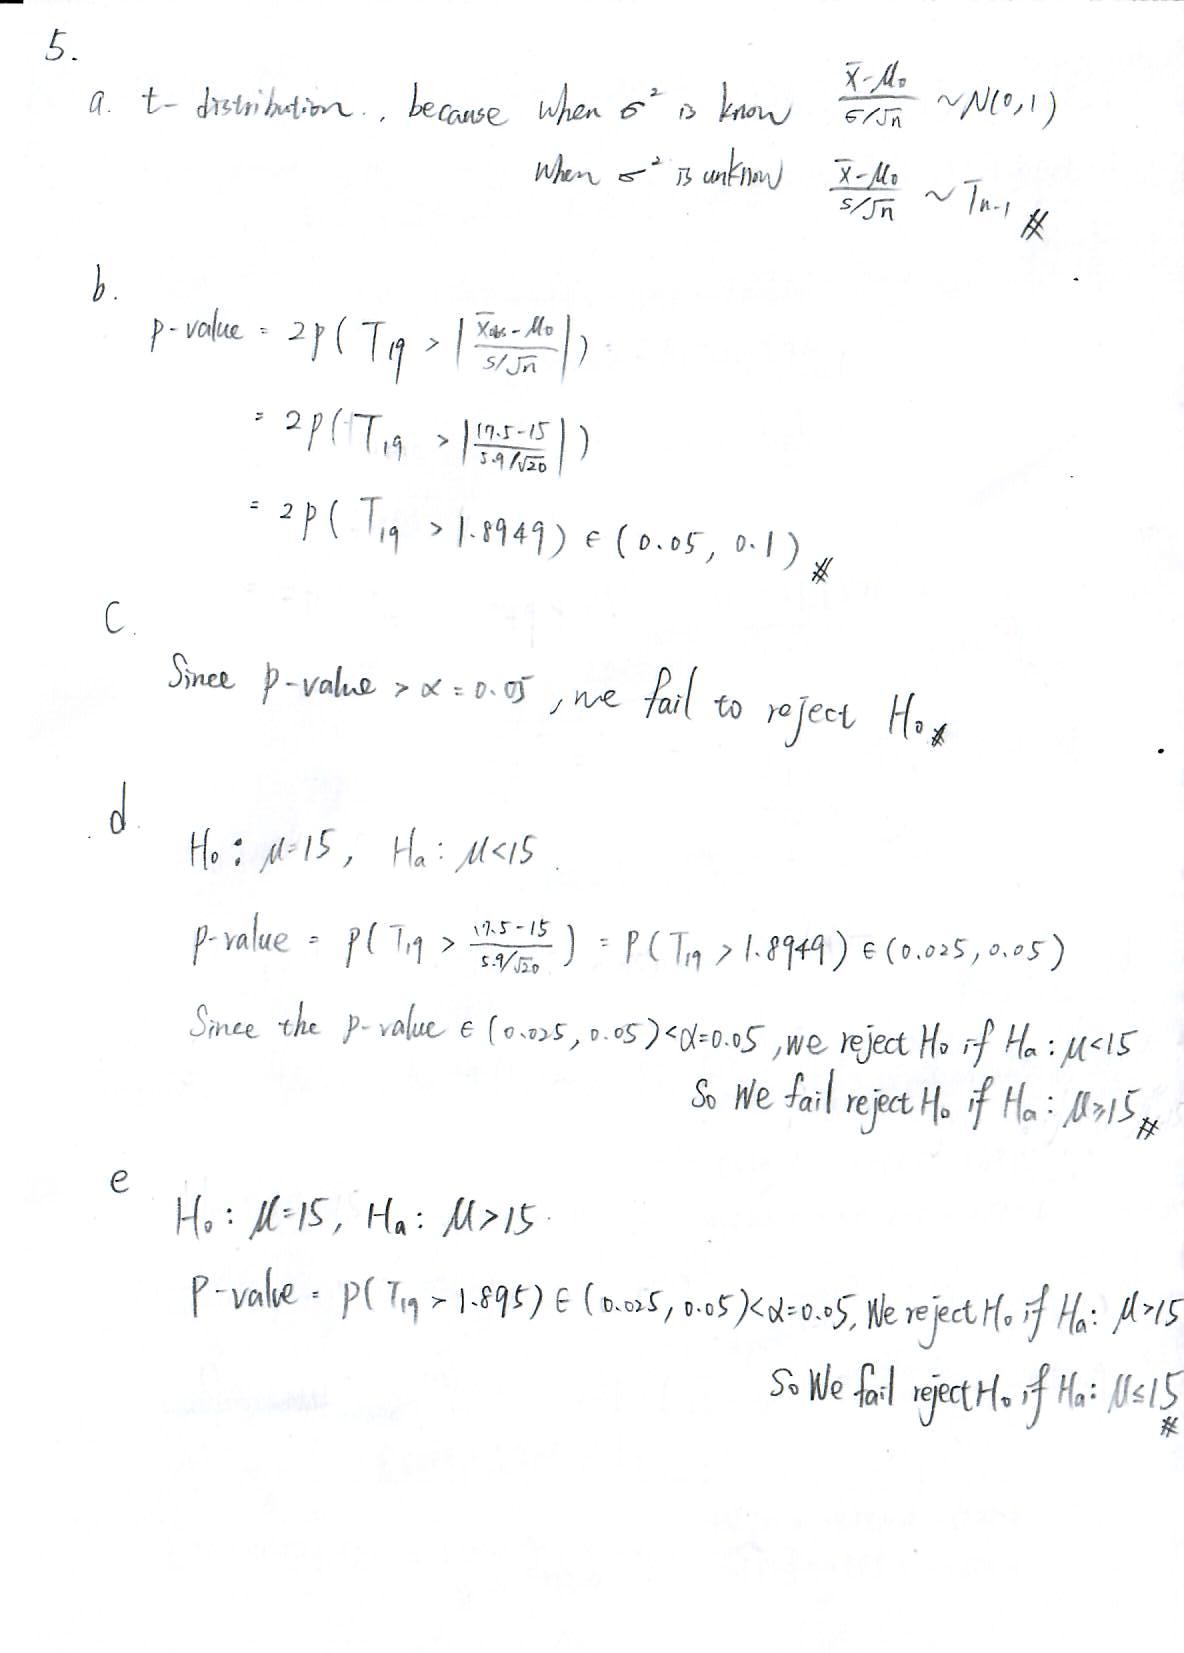 5.
a. t-distribution., because when σ² is know (x̄-μ₀)/(σ/√n) ~N(0,1)
When σ² is unknow (x̄-μ₀)/(s/√n) ~ Tn-1 #
b.
p-value = 2p( T19 > |(x̄obs-μ₀)/(s/√n)|)
= 2p( T19 > |(17.5-15)/(5.9/√20)|)
= 2p( T19 > 1.8949) ∈ (0.05, 0.1) #
C.
Since p-value > α = 0.05, we fail to reject H₀ #
d.
H₀: μ=15, Ha: μ<15.
p-value = p( T19 > (17.5-15)/(5.9/√20) ) = P( T19 > 1.8949) ∈ (0.025, 0.05)
Since the p-value ∈ (0.025, 0.05) < α=0.05, we reject H₀ if Ha: μ<15
So We fail reject H₀ if Ha: μ≥15 #
e
H₀: μ=15, Ha: μ>15.
P-value = p( T19 > 1.895) ∈ (0.025, 0.05) < α=0.05, We reject H₀ if Ha: μ>15
So We fail reject H₀ if Ha: μ≤15 #